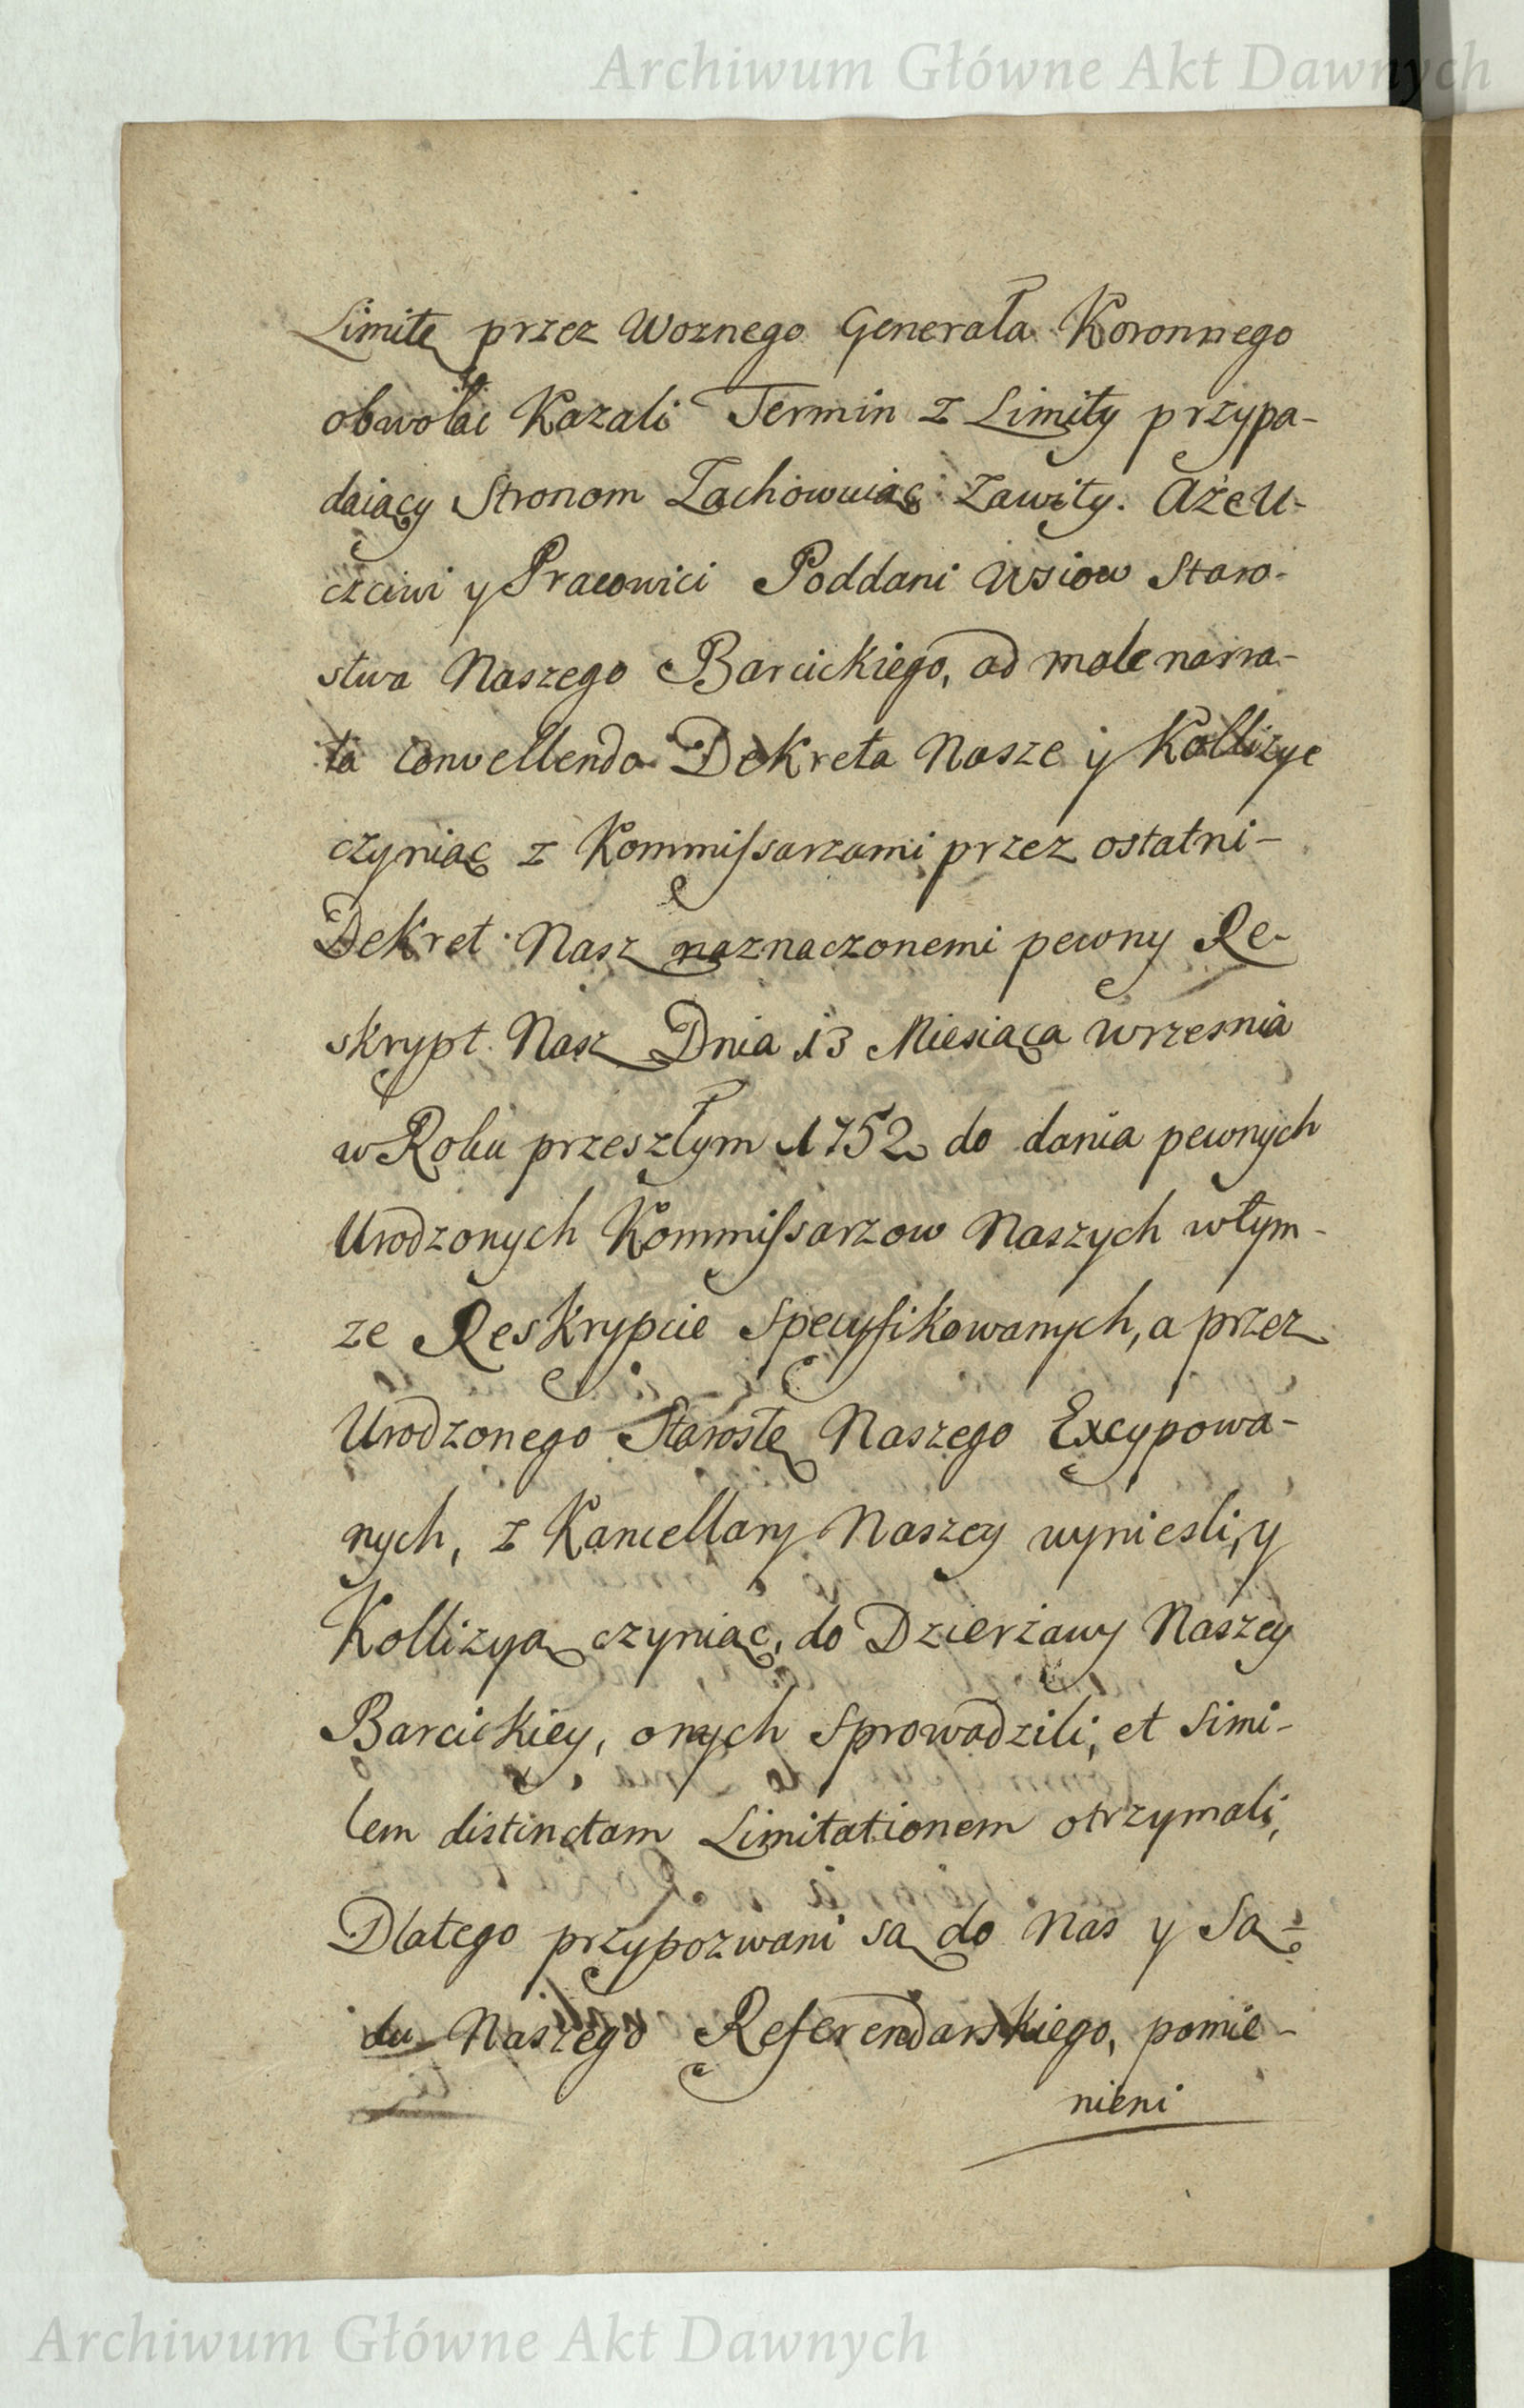 Archiwum Główne Akt Dawnych
Limitę przez Woznego Generała Koronnego
obwołać Kazali Termin z Limity przypa-
daiący Stronom Zachowuiąc Zawity. Aże U-
czciwi y Pracowici Poddani Wsiow Staro-
stwa Naszego Barcickiego, ad male narra-
ta convellenda Dekreta Nasze y Kollizye
czyniąc z Kommissarzami przez ostatni-
Dekret Nasz naznaczonemi pewny Re-
skrypt Nasz Dnia 13 Miesiąca wrzesnia
w Roku przeszłym 1752 do dania pewnych
Urodzonych Kommissarzow Naszych wtym-
ze Reskrypcie Specyfikowanych, a przez
Urodzonego Starostę Naszego Excypowa-
nych, z Kancellary Naszey wyniesli, y
Kollizyą czyniąc, do Dzierżawy Naszey
Barcickiey, onych Sprowadzili, et Simi-
lem distinctam Limitationem otrzymali,
Dlatego przypozwani są do Nas y Są-
du Naszego Referendarskiego, pomie-
nieni
Archiwum Główne Akt Dawnych